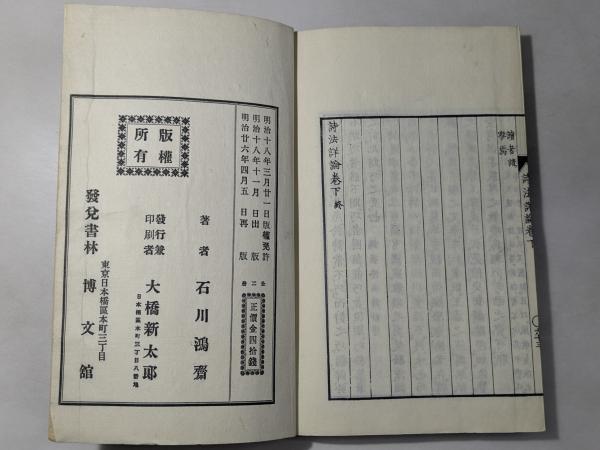 詩法詳論卷下
詩法詳論卷下終
明治十八年三月廿一日版權免許
明治十八年十一月 日出版
明治廿六年四月五日再版
全二册
正價金四拾錢
著者 石川鴻齋
發行兼印刷者 大橋新太郎
日本橋區本町三丁目八番地
版權所有
東京日本橋區本町三丁目
發兌書林 博文館